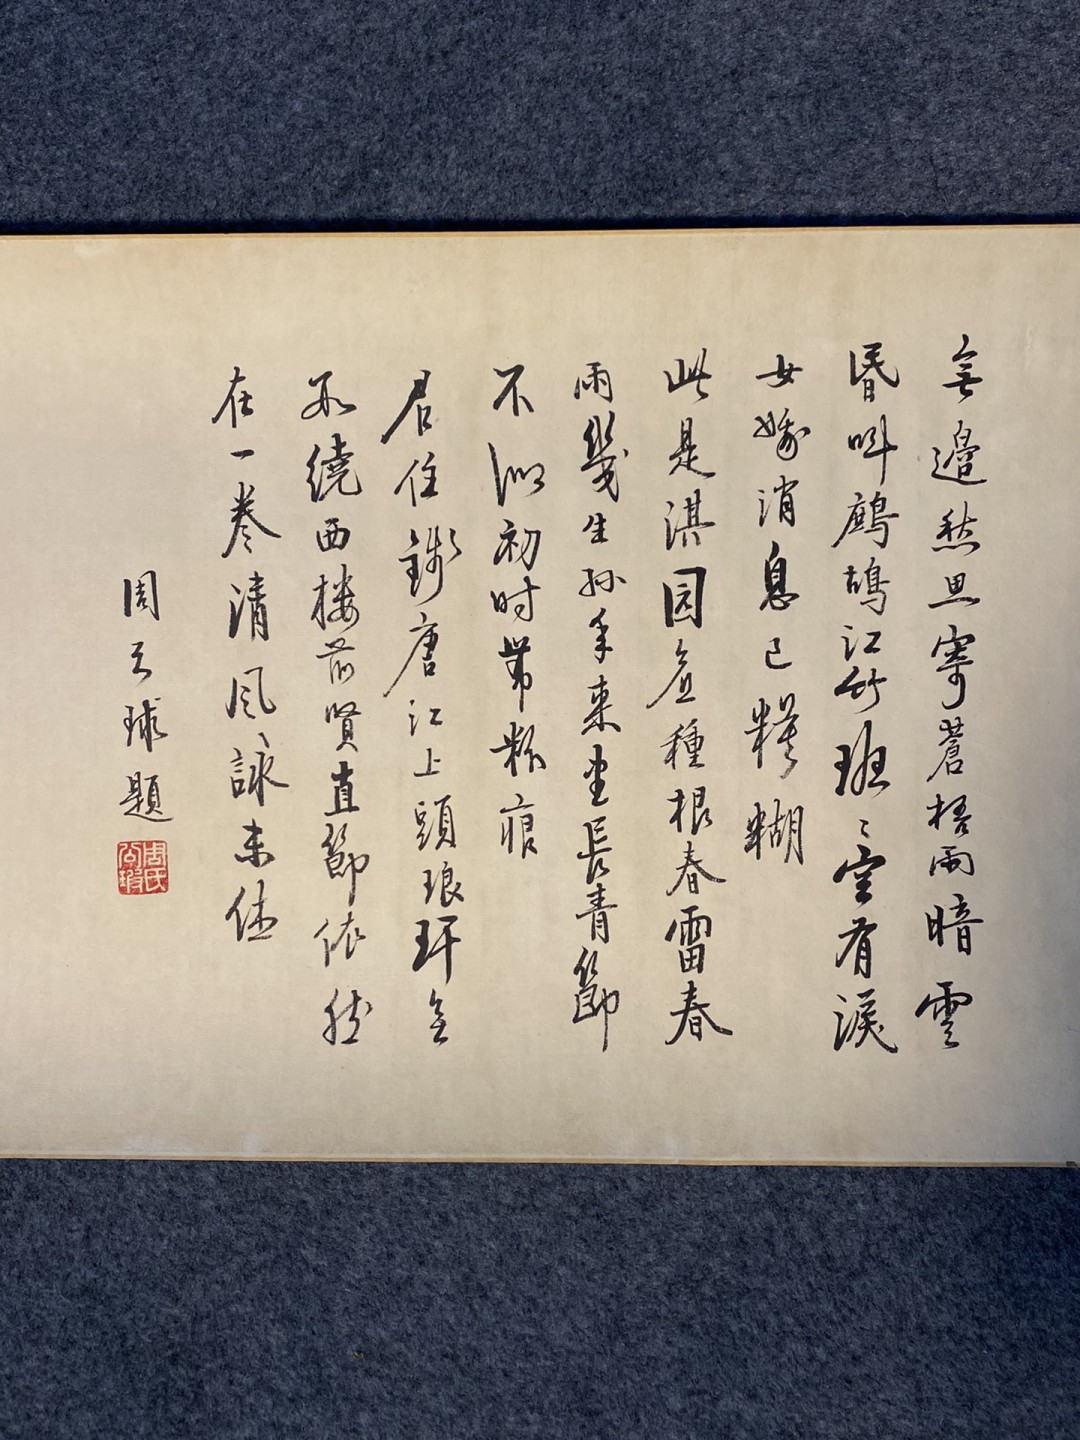 無邊愁思寄蒼梧雨暗雲
昏叫鷓鴣江竹班〻空有淚
女娥消息已糢糊
此是淇園舊種根春雷春
雨幾生孫年來老長青節
不似初时帶粉痕
君住錢唐江上頭琅玕無
數繞西樓前賢直節依然
在一卷清風詠未休
周天球題
周氏公瑕